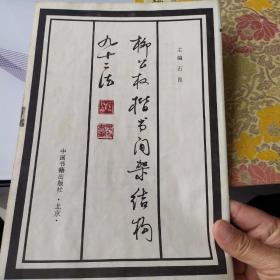 主编 石良
柳公权楷书间架结构
九十二法
中国书籍出版社
·北京·